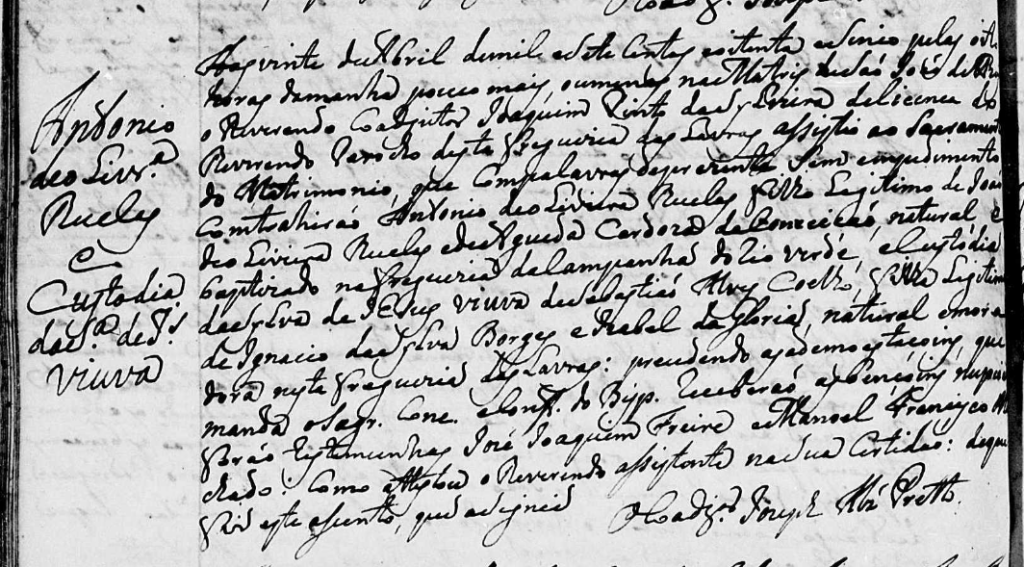 Antonio
de oLivr.ª
Ruely
e
Custodia
da S.ª de Js.
viuva
Aos vinte de Abril de mil e sete Centos e oitenta e sinco pelas oito
horas da manhã pouco mais, ou menos na Matris de São José
o Reverendo Coadjutor Joaquim Pinto da Sylveira de licença do
Reverendo Parocho desta Freguezia das Lavras assistio ao Sacramento
do Matrimonio, que Com palavras de prezente Sem empedimento
Comtrahirão Antonio de oLiveira Ruely Filho Legitimo de João
de oLiveira Ruely e de Agueda Cardoza da Conceicão, natural e
baptizado na Freguezia da Campanha do Rio verde, e Custódia
da Sylva de JEsus viuva de Sebastião Alvez Coelho, Filha Legitima
de Ignacio da Sylva Borges e Izabel da Gloria, natural e mora
dora neste Freguezia das Lavras: precedendo asademoestacoins, que
manda o Sagr. Conc. e Const. do Bisp. Receberão as Bencoins nupciais
Forão Testemunhas José Joaquim Freire e Manoel Francisco Ma
chado: Como attestou o Reverendo assistente na Sua Certidão: de que
Fiz este asento, que asignei
O Coadj.or Joseph Alz Pretto.